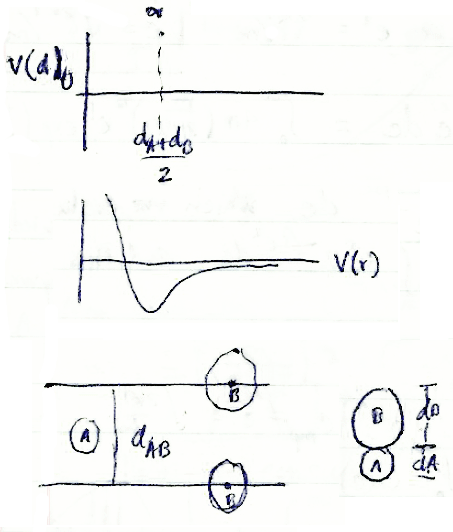 ∞
V(d)
0
dA+dB
2
V(r)
B
A
dAB
B
B
dB
A
dA